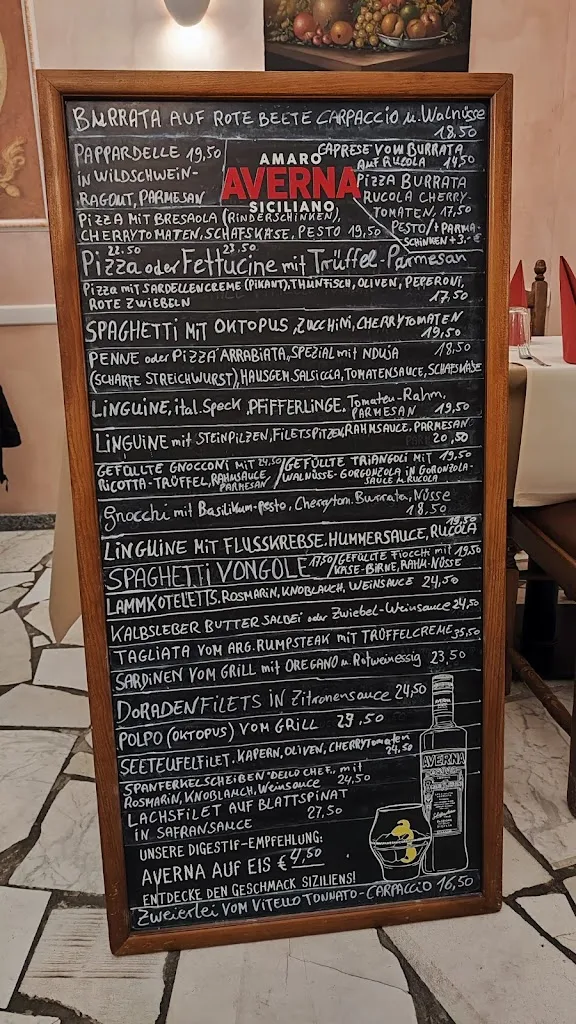 BURRATA AUF ROTE BEETE CARPACCIO u. Walnüsse
18,50
PAPPARDELLE 19,50
IN WILDSCHWEIN-
RAGOUT, PARMESAN
AMARO
AVERNA
SICILIANO
CAPRESE VOM BURRATA
AUF RUCOLA 14,50
PIZZA BURRATA
RUCOLA CHERRY-
TOMATEN, 17,50
PESTO/+PARMA-
SCHINKEN +3.-€
PIZZA MIT BRESAOLA (RINDERSCHINKEN),
CHERRYTOMATEN, SCHAFSKÄSE, PESTO 19,50
22.50 23.50
Pizza oder Fettucine mit Trüffel-Parmesan
PIZZA MIT SARDELLENCREME (PIKANT), THUNFISCH, OLIVEN, PEPERONI,
ROTE ZWIEBELN 17,50
SPAGHETTI MIT OKTOPUS, ZUCCHINI, CHERRYTOMATEN
19,50
PENNE oder PIZZA ARRABIATA, SPEZIAL mit NDUJA 18,50
(SCHARFE STREICHWURST), HAUSGEM. SALSICCIA, TOMATENSAUCE, SCHAFSKÄSE
LINGUINE, ital. Speck, PFIFFERLINGE, Tomaten-Rahm,
PARMESAN 19,50
LINGUINE mit STEINPILZEN, FILETSPITZEN RAHMSAUCE, PARMESAN
20,50
GEFÜLLTE GNOCCONI MIT 24,50
RICOTTA-TRÜFFEL, RAHMSAUCE
PARMESAN
/GEFÜLLTE TRIANGOLI MIT 19,50
WALNÜSSE-GORGONZOLA IN GORONZOLA-
SAUCE u. RUCOLA
Gnocchi mit Basilikum-pesto, Cherrytom. Burrata, Nüsse
18.50
LINGUINE MIT FLUSSKREBSE, HUMMERSAUCE, RUCOLA
19,50
SPAGHETTI VONGOLE 17,50
/GEFÜLLTE FIOCCHI mit 19,50
KÄSE-BIRNE, RAHM-NÜSSE
LAMMKOTELETTS, ROSMARIN, KNOBLAUCH, WEINSAUCE 24,50
KALBSLEBER BUTTER SALBEI oder Zwiebel-Weinsauce 24,50
TAGLIATA VOM ARG. RUMPSTEAK MIT TRÜFFELCREME 35,50
SARDINEN VOM GRILL mit OREGANO u. Rotweinessig 23,50
DORADENFILETS IN Zitronensauce 24,50
POLPO (OKTOPUS) VOM GRILL 29,50
SEETEUFELFILET, KAPERN, OLIVEN, CHERRYTOMATEN
24,50
SPANFERKELSCHEIBEN "DELLO CHEF", mit
ROSMARIN, KNOBLAUCH, Weinsauce 24,50
LACHSFILET AUF BLATTSPINAT
IN SAFRANSAUCE 27,50
UNSERE DIGESTIF-EMPFEHLUNG:
AVERNA AUF EIS € 4,50
ENTDECKE DEN GESCHMACK SIZILIENS!
AVERNA
Zweierlei VOM VITELLO TONNATO-CARPACCIO 16,50